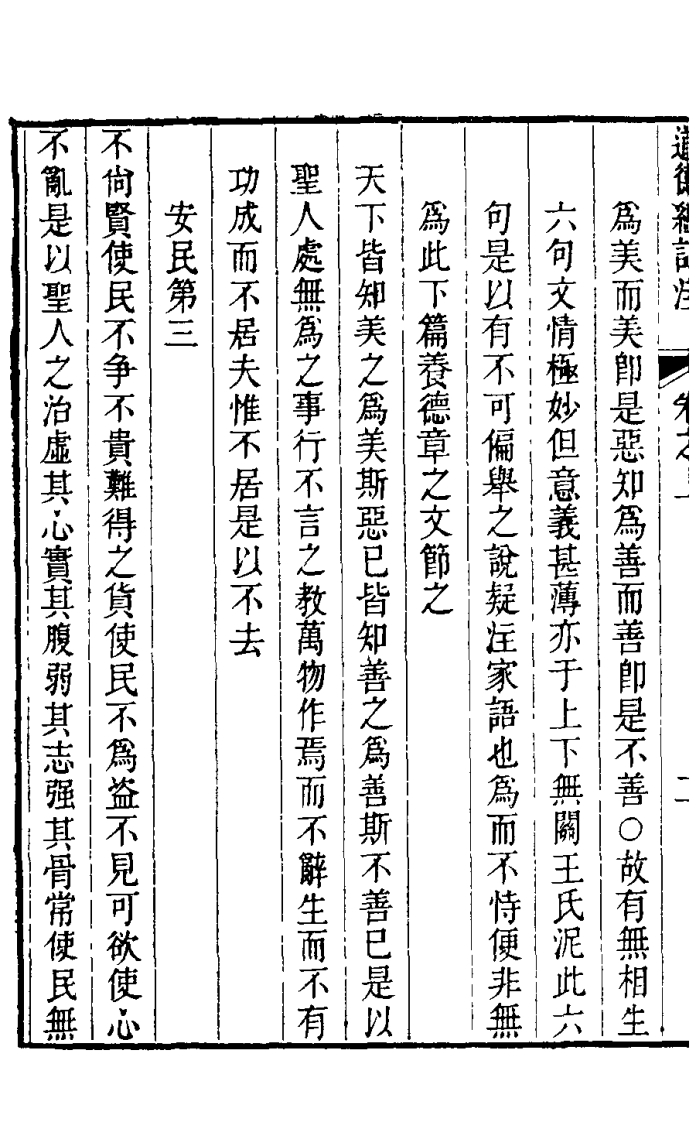 為美而美卽是惡知為善而善卽是不善○故有無相生
六句文情極妙但意義甚薄亦于上下無關王氏泥此六
句是以有不可偏舉之說疑注家語也為而不恃便非無
為此下篇養德章之文節之
天下皆知美之為美斯惡已皆知善之為善斯不善已是以
聖人處無為之事行不言之教萬物作焉而不辭生而不有
功成而不居夫惟不居是以不去
安民第三
不尙賢使民不爭不貴難得之貨使民不為盜不見可欲使心
不亂是以聖人之治虛其心實其腹弱其志强其骨常使民無